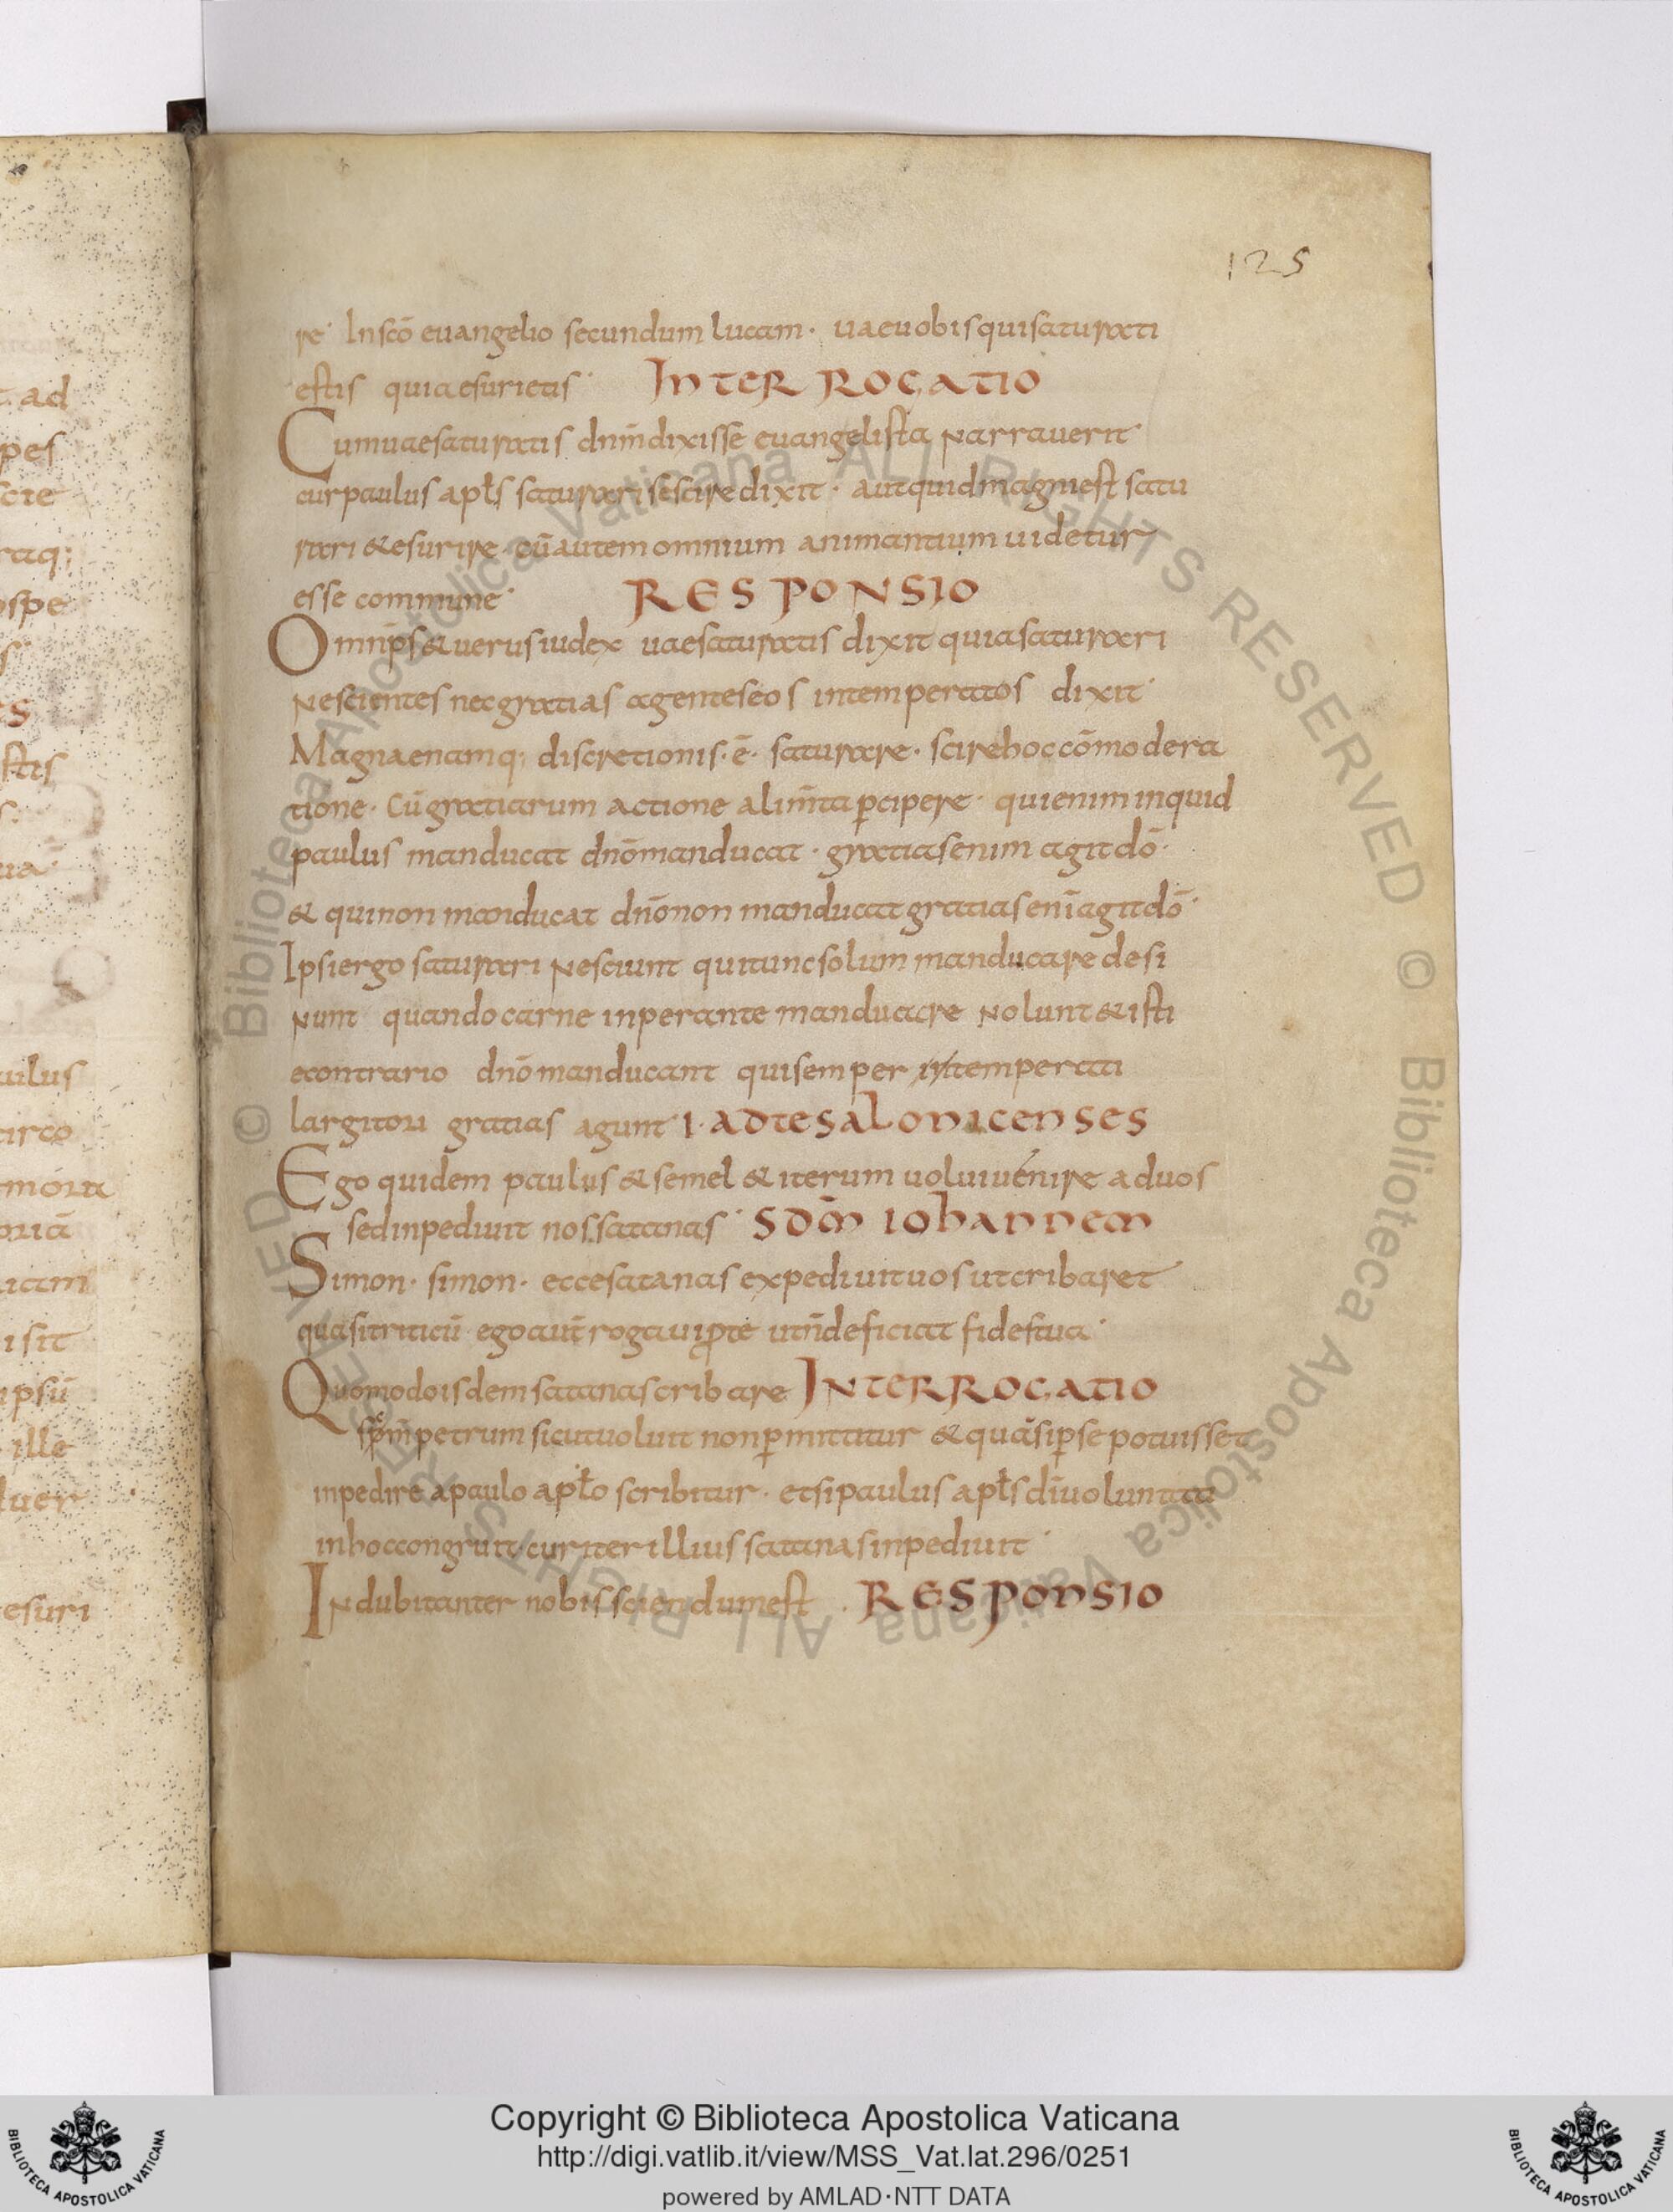 125
re· In scō euangelio secundum lucam· uae uobis qui saturati
estis quia esurietis· INTERROGATIO
Cum uae saturatis dnm̄ dixisse euangelista narrauerit·
cur paulus apłs saturari se scire dixit· aut quid magni est satu
rari & esurire· cū autem omnium animantium uidetur
esse commune· RESPONSIO
Omnip̄s & uerus iudex uae saturatis dixit quia saturari
nescientes nec gratias agentes eos intemperatos dixit·
Magnae namq; discretionis· ē· saturare· scire hoc cō modera
tione· cū gratiarum actione alim̄ta ꝑcipere· qui enim inquid
paulus manducat dnō manducat· gratias enim agit dō·
& qui non manducat dnō non manducat gratias enī agit dō·
Ipsi ergo saturari nesciunt qui tunc solum manducare desi
nunt quando carne inperante manducare nolunt & isti
econtrario dnō manducant qui semper intemperati
largitori gratias agunt· I· AD TESALONICENSES
Ego quidem paulus & semel & iterum uolui uenire ad uos
sed inpediuit nos satanas· SDM̄ IOHANNEM
Simon· simon· ecce satanas expediuit uos ut cribaret
quasi triticū ego aut̄ rogaui ꝓ te ut n̄ deficiat fides tua·
Quomodo isdem satanas cribare INTERROGATIO
petrum sicut uoluit non ꝑmittitur & quasi ꝑ se potuisset
inpedire a paulo apło scribitur· etsi paulus apłs dī uoluntati
in hoc congruit· cur iter illius satanas inpediuit·
Indubitanter nobis sciendum est· RESPONSIO
ad
pes
scie
raq;
ospe
s
stis
uilus
circo
moria
oriā
isit
ipsū
ille
luer
esuri
© Biblioteca Apostolica Vaticana ALL RIGHTS RESERVED
© Biblioteca Apostolica Vaticana ALL RIGHTS RESERVED
BIBLIOTECA APOSTOLICA VATICANA
Copyright © Biblioteca Apostolica Vaticana
http://digi.vatlib.it/view/MSS_Vat.lat.296/0251
powered by AMLAD·NTT DATA
BIBLIOTECA APOSTOLICA VATICANA